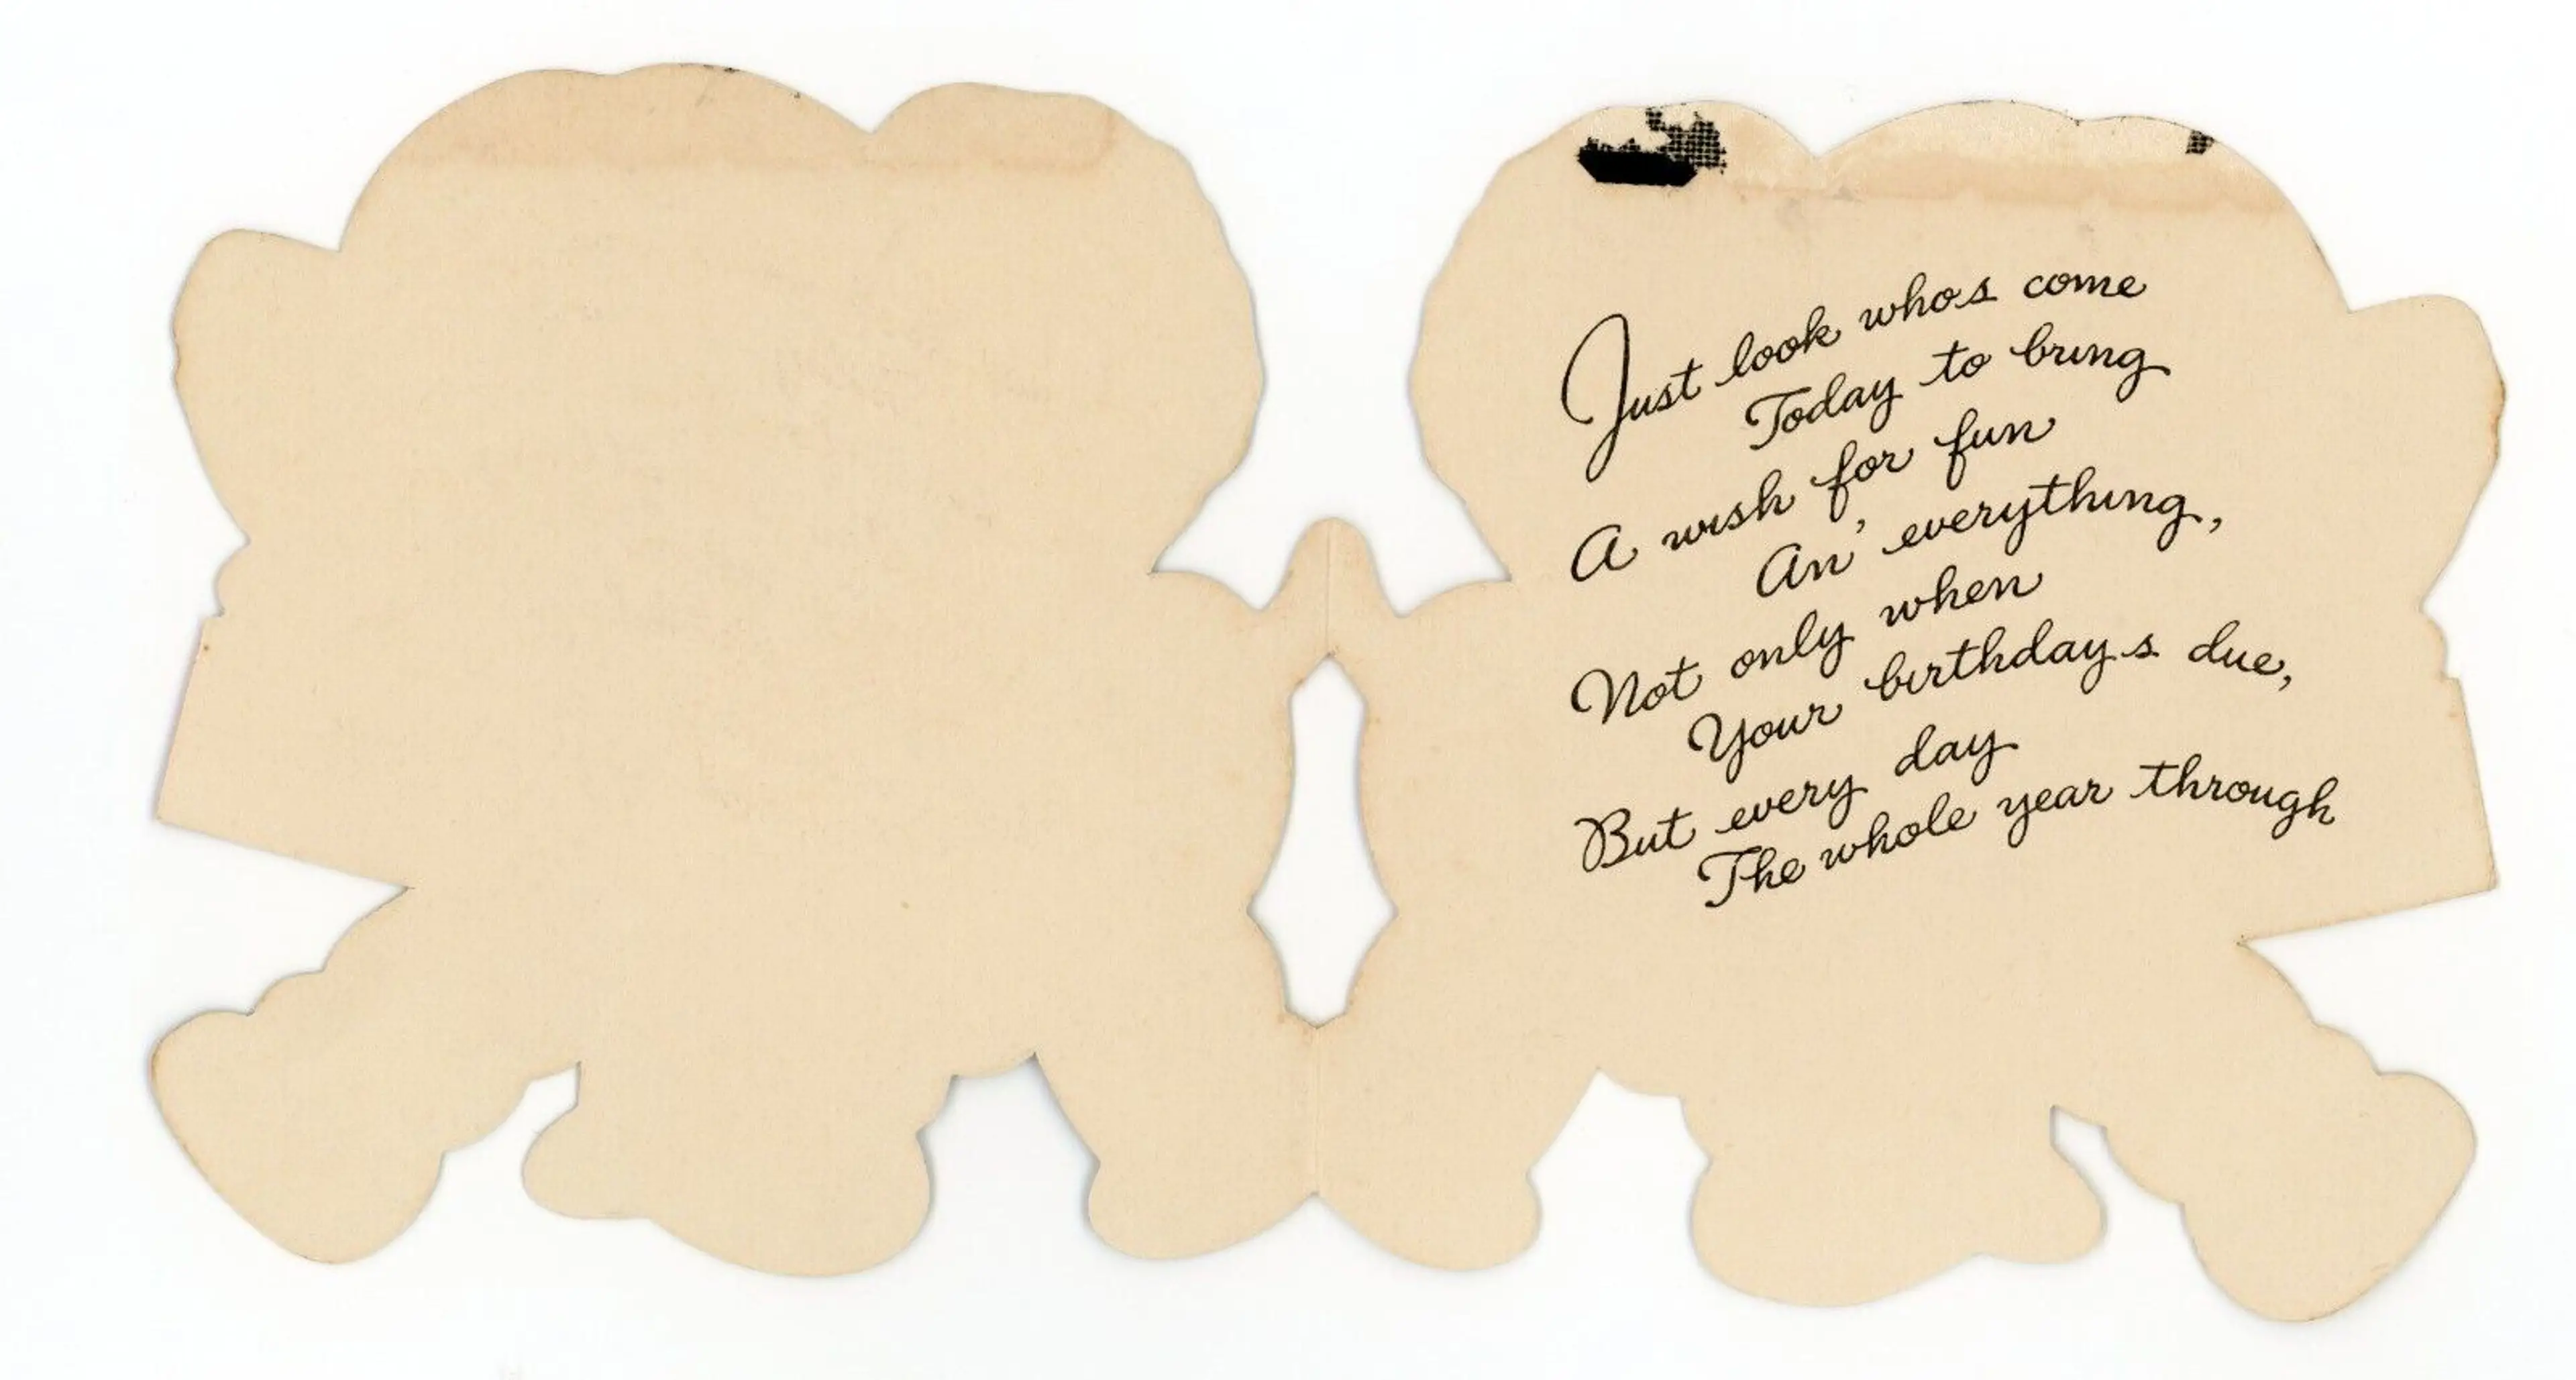 Just look who's come
Today to bring
A wish for fun
An' everything,
Not only when
Your birthday's due,
But every day
The whole year through